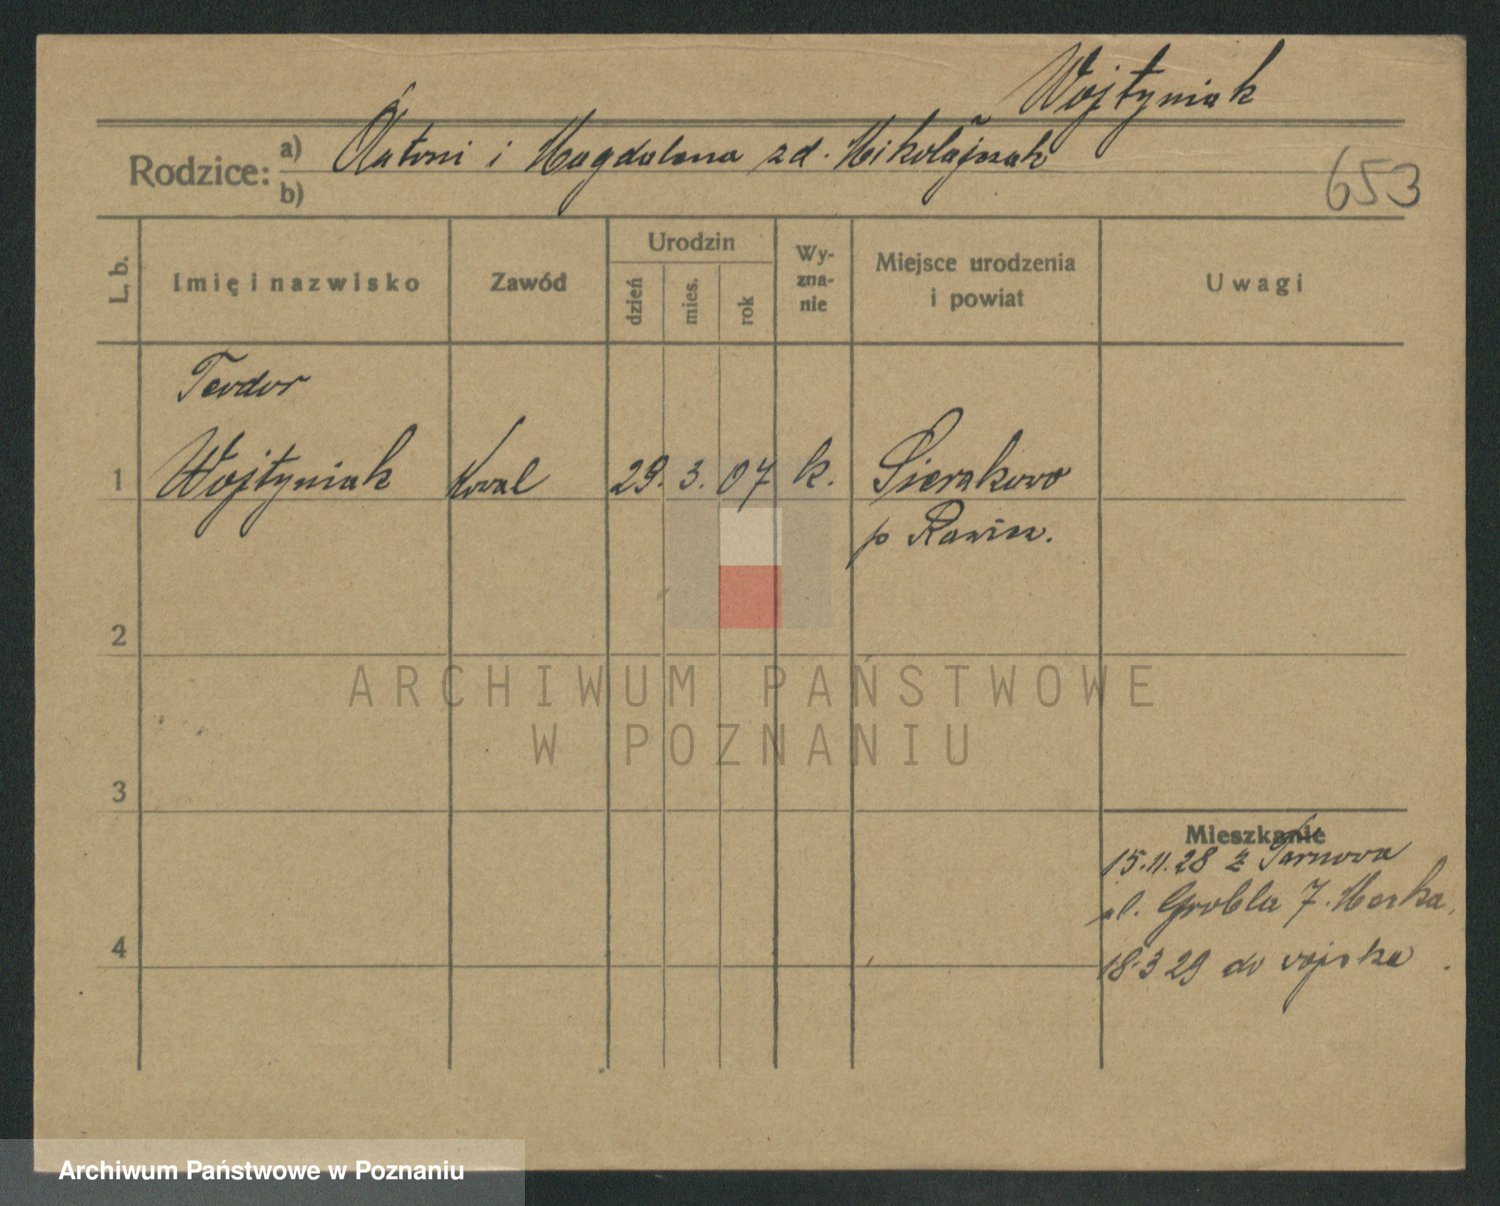 Wojtyniak
Rodzice: a) Antoni i Magdalena zd. Mikołajczak
b)
653
L. b.
Imię i nazwisko
Zawód
Urodzin
dzień
mies.
rok
Wy-
zna-
nie
Miejsce urodzenia
i powiat
Uwagi
Teodor
1 Wojtyniak Kowal 29. 3. 07 k. Sierakowo
p Rawicz.
2
ARCHIWUM PAŃSTWOWE
W POZNANIU
3
Mieszkanie
15.11.28 z Tarnowa
ul. Grobla 7.
4
18.3 29 do wojska
Archiwum Państwowe w Poznaniu